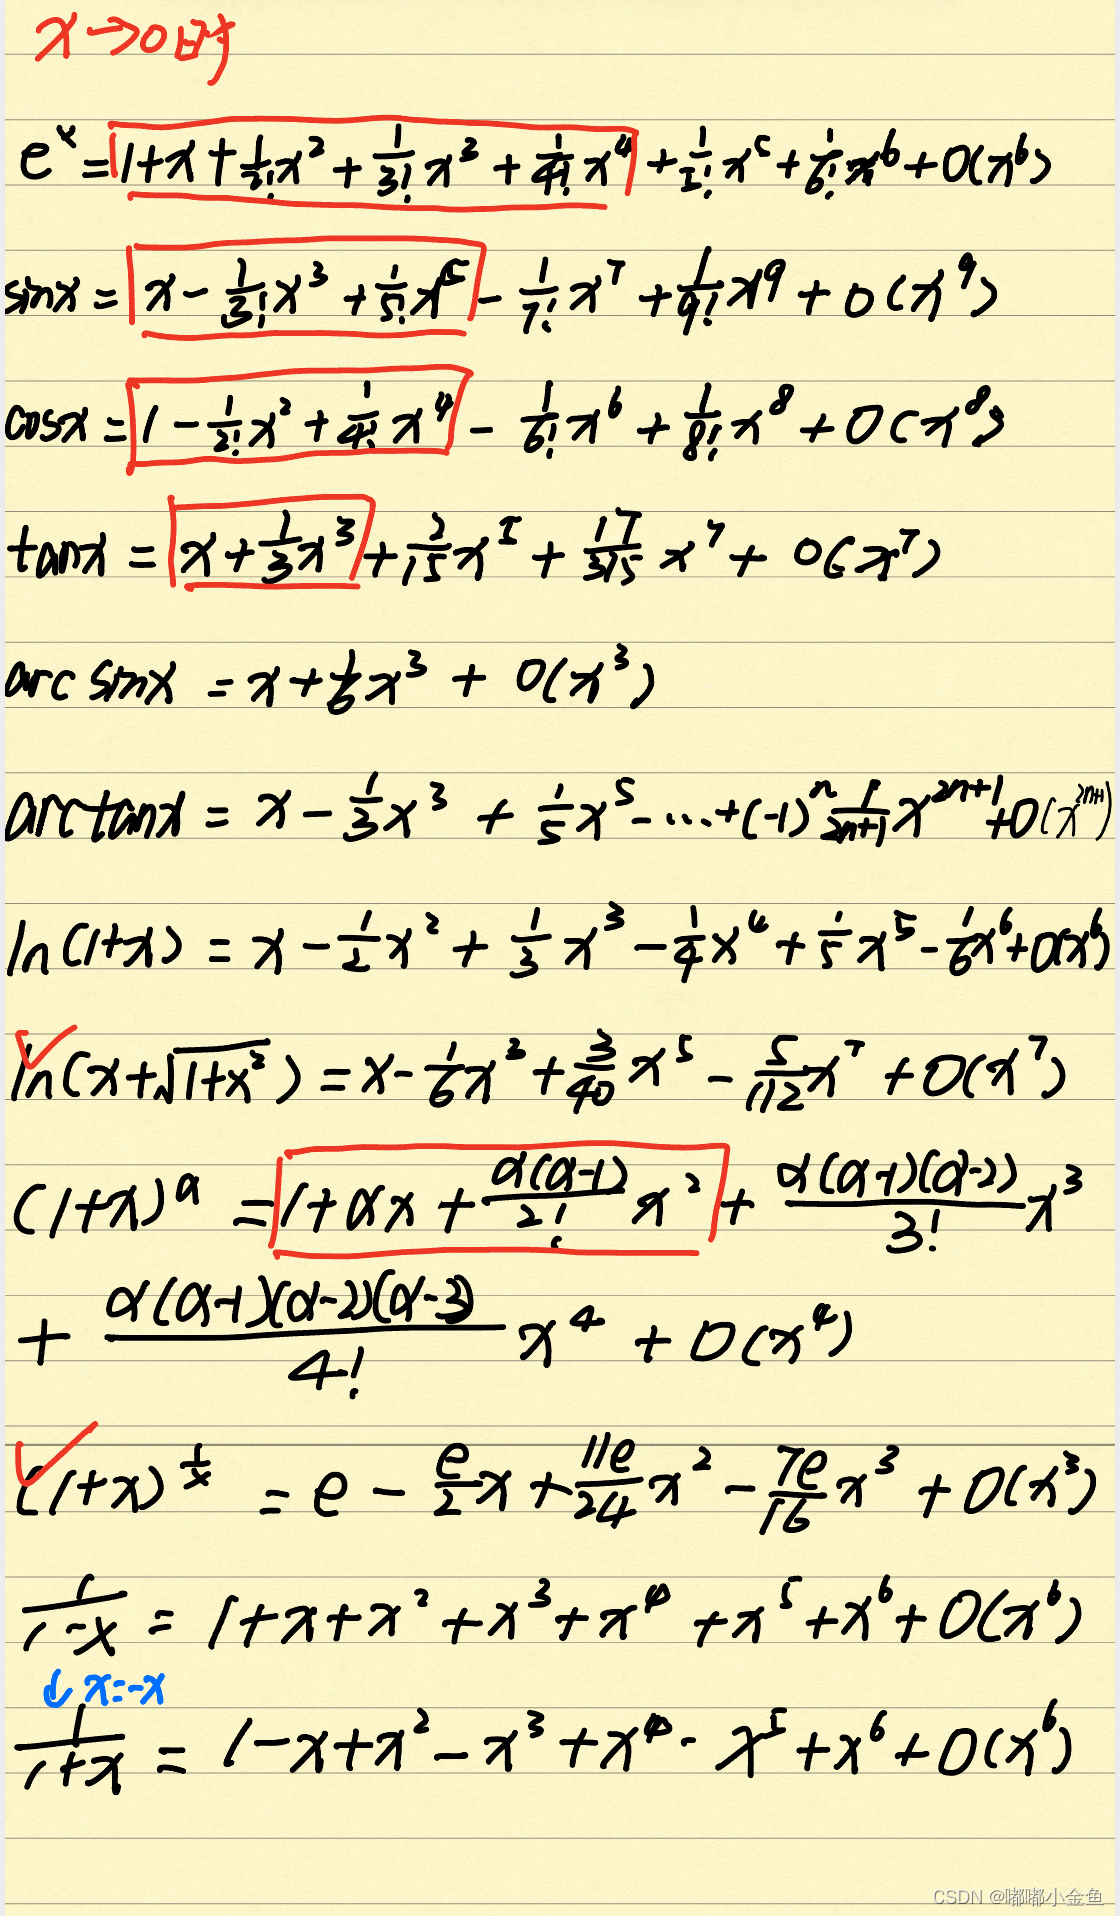 x→0时
e^x = 1+x+1/2! x^2 + 1/3! x^3 + 1/4! x^4 + 1/5! x^5 + 1/6! x^6 + o(x^6)
sinx = x - 1/3! x^3 + 1/5! x^5 - 1/7! x^7 + 1/9! x^9 + o(x^9)
cosx = 1 - 1/2! x^2 + 1/4! x^4 - 1/6! x^6 + 1/8! x^8 + o(x^8)
tanx = x + 1/3 x^3 + 2/15 x^5 + 17/315 x^7 + o(x^7)
arcsinx = x + 1/6 x^3 + o(x^3)
arctanx = x - 1/3 x^3 + 1/5 x^5 - ... + (-1)^n 1/(2n+1) x^(2n+1) + o(x^(2n+1))
ln(1+x) = x - 1/2 x^2 + 1/3 x^3 - 1/4 x^4 + 1/5 x^5 - 1/6 x^6 + o(x^6)
✓ ln(x+√(1+x^2)) = x - 1/6 x^3 + 3/40 x^5 - 5/112 x^7 + o(x^7)
(1+x)^α = 1+αx + α(α-1)/2! x^2 + α(α-1)(α-2)/3! x^3
+ α(α-1)(α-2)(α-3)/4! x^4 + o(x^4)
✓ (1+x)^(1/x) = e - e/2 x + 11e/24 x^2 - 7e/16 x^3 + o(x^3)
1/(1-x) = 1+x+x^2+x^3+x^4+x^5+x^6+o(x^6)
↓ x=-x
1/(1+x) = 1-x+x^2-x^3+x^4-x^5+x^6+o(x^6)
CSDN @嘟嘟小金鱼